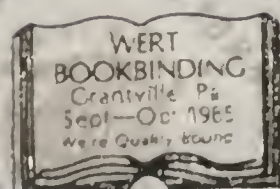 WERT
BOOKBINDING
Grantville Pa
Sept—Oct 1985
We're Quality Bound